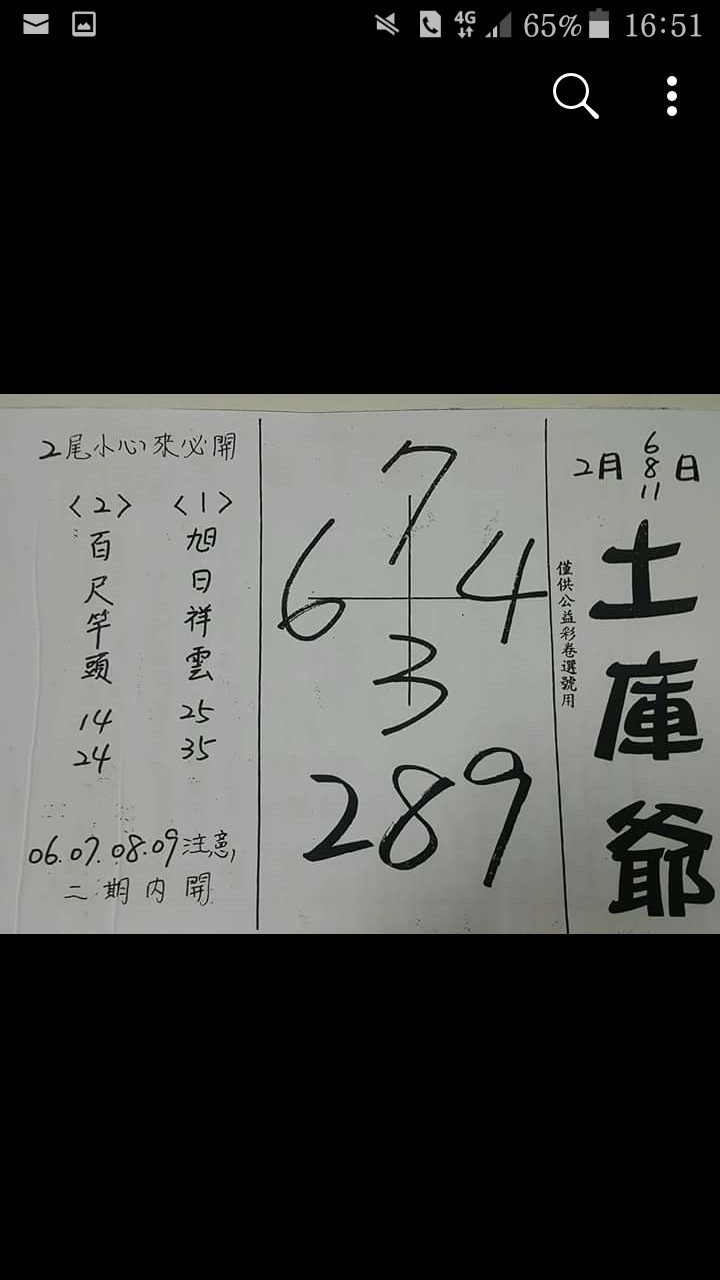 4G 65% 16:51
2月 6 8 11 日
土庫爺
僅供公益彩卷選號用
7
6 4
3
289
2尾小心來必開
<1>
旭日祥雲
25
35
<2>
百尺竿頭
14
24
06.07.08.09注意,
二期內開